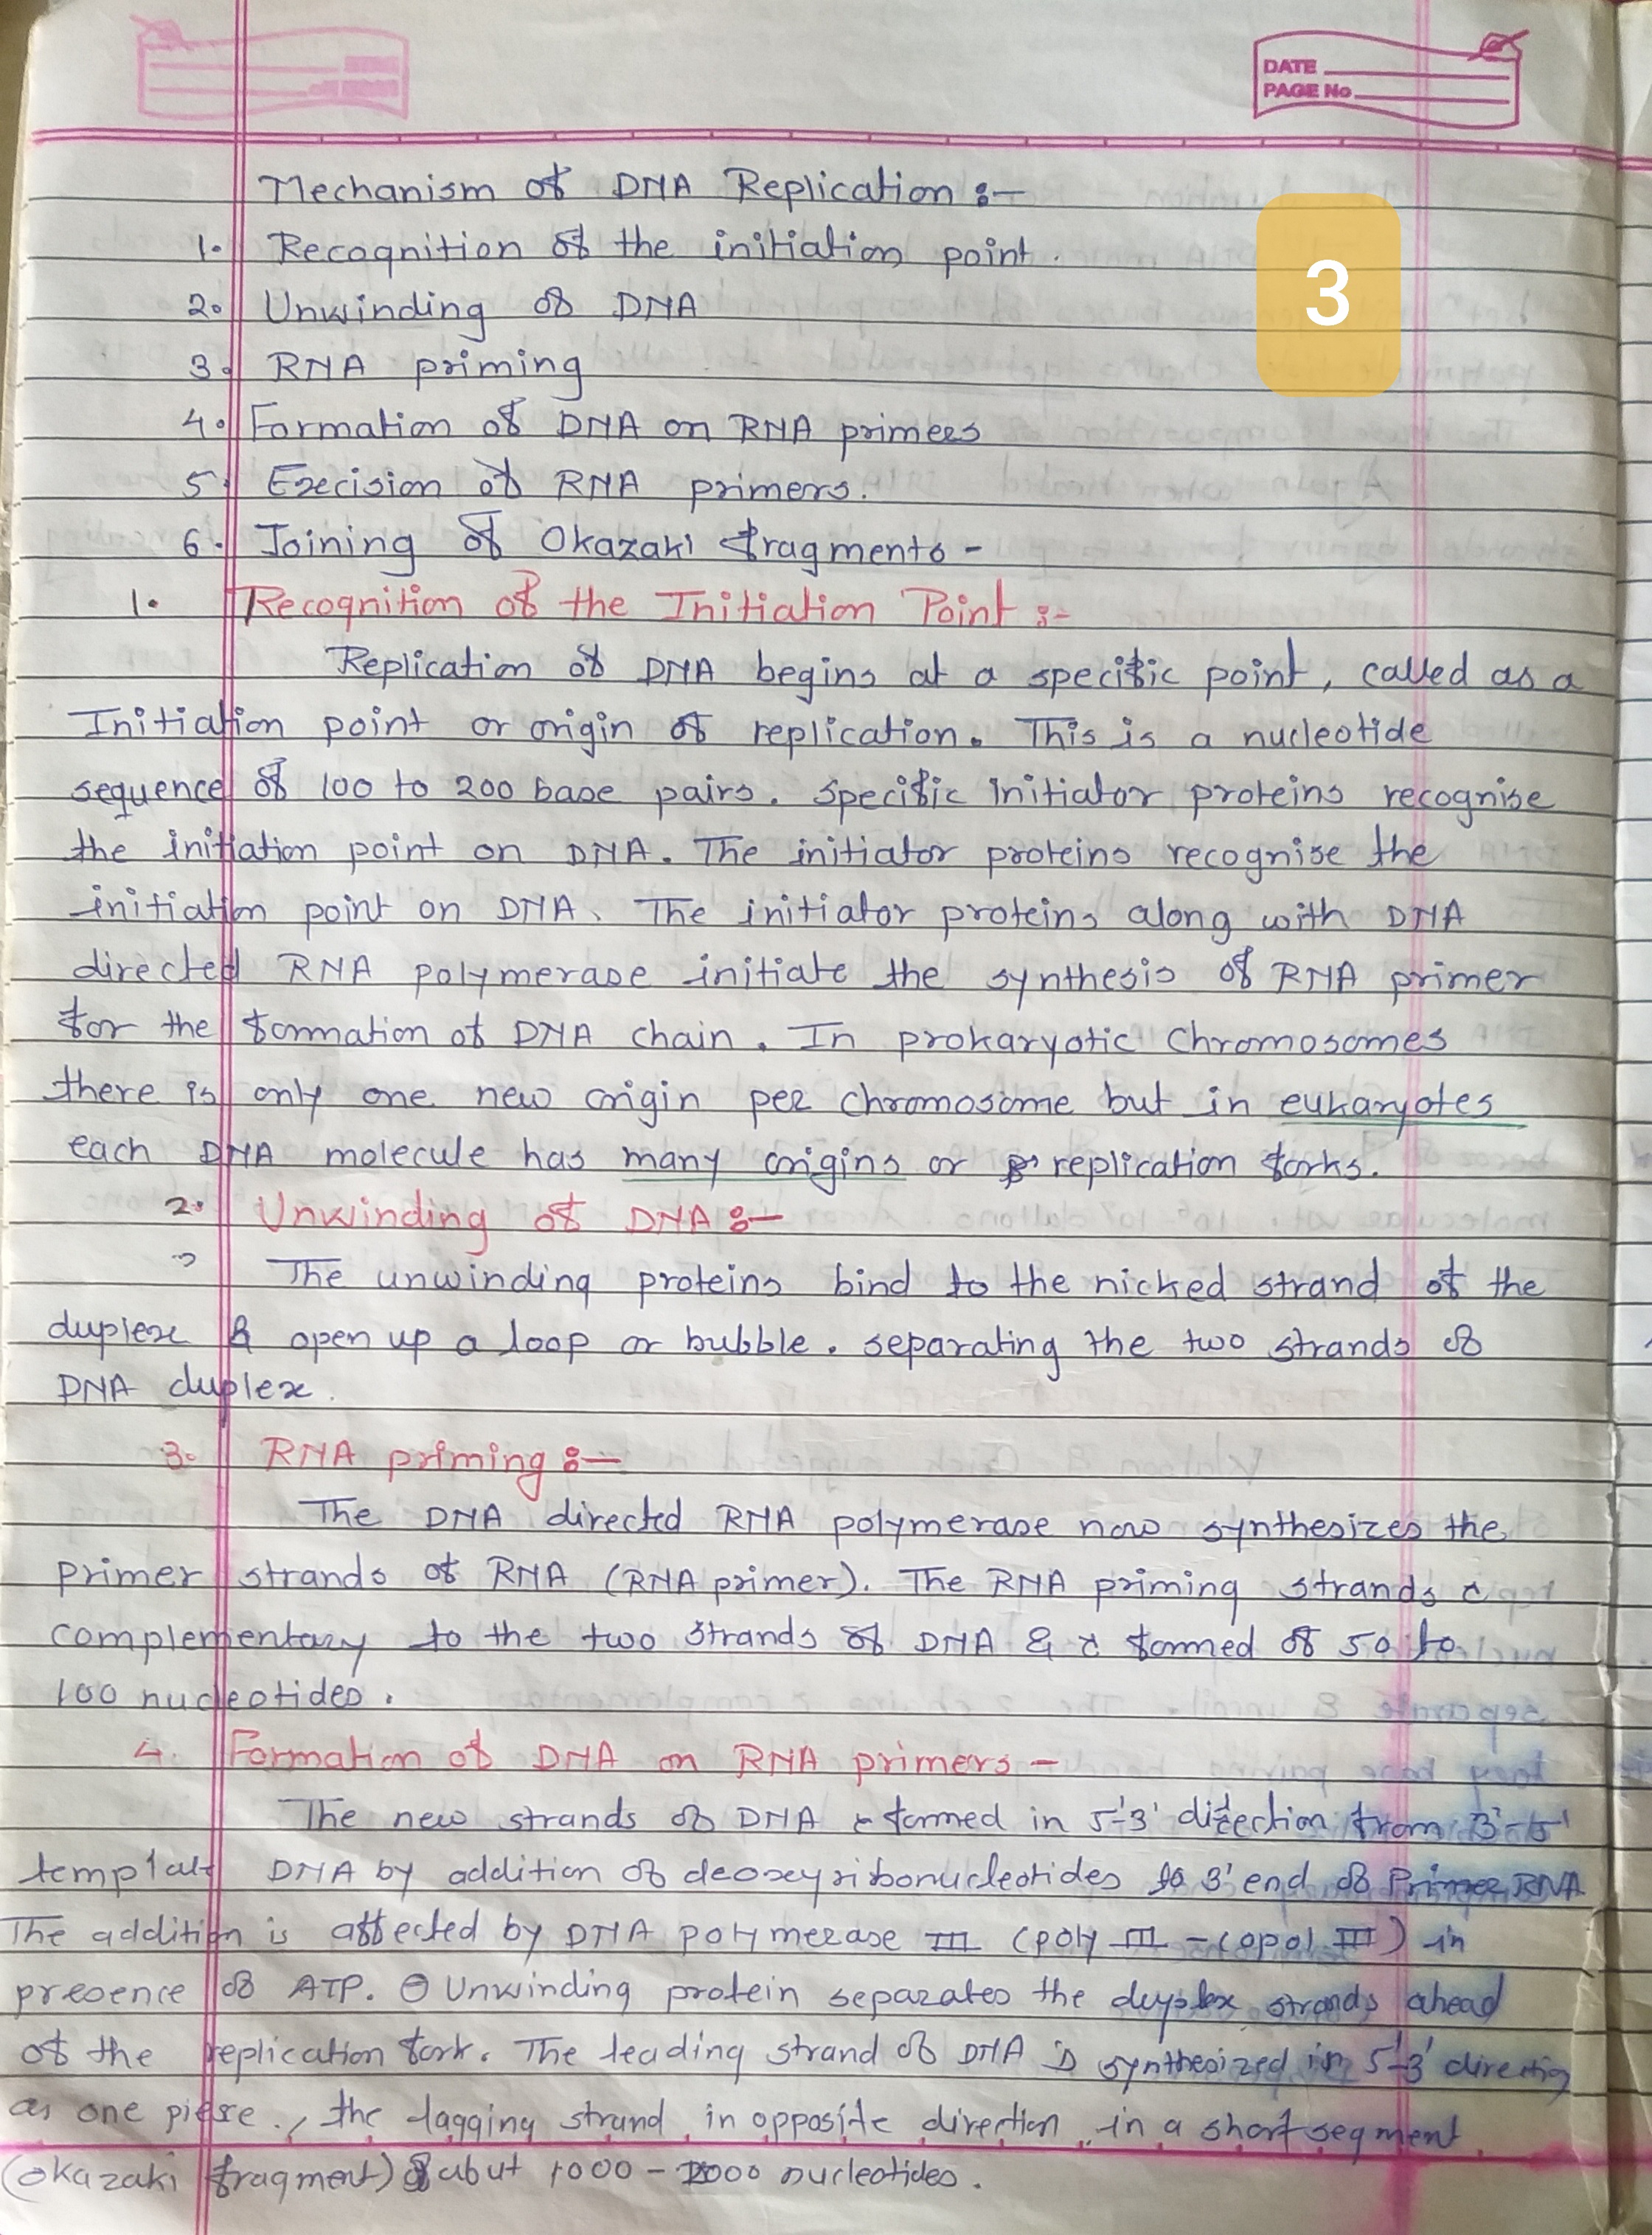 DATE
PAGE No
3
Mechanism of DNA Replication :-
1. Recognition of the initiation point.
2. Unwinding of DNA
3. RNA priming
4. Formation of DNA on RNA primers
5. Execision of RNA primers.
6. Joining of Okazaki fragments -
1. Recognition of the Initiation Point :-
Replication of DNA begins at a specific point, called as a
Initiation point or origin of replication. This is a nucleotide
sequence of 100 to 200 base pairs. Specific initiator proteins recognise
the initiation point on DNA. The initiator proteins recognise the
initiation point on DNA. The initiator proteins along with DNA
directed RNA polymerase initiate the synthesis of RNA primer
for the formation of DNA chain. In prokaryotic chromosomes
there is only one new origin per chromosome but in eukaryotes
each DNA molecule has many origins or replication forks.
2. Unwinding of DNA :-
The unwinding proteins bind to the nicked strand of the
duplex & open up a loop or bubble. separating the two strands of
DNA duplex.
3. RNA priming :-
The DNA directed RNA polymerase now synthesizes the
primer strands of RNA (RNA primer). The RNA priming strands
complementary to the two strands of DNA & formed of 50 to
100 nucleotides.
4. Formation of DNA on RNA primers -
The new strands of DNA formed in 5'-3' direction from 3'-5'
template DNA by addition of deoxeyribonucleotides to 3' end of Primer RNA
The addition is affected by DNA polymerase III (poly III - copol III) in
presence of ATP. Unwinding protein separates the duplex strands ahead
of the replication fork. The leading strand of DNA is synthesized in 5'-3' direction
as one piese., the lagging strand in opposite direction in a short segment
(Okazaki fragment) of abut 1000 - 2000 nucleotides.